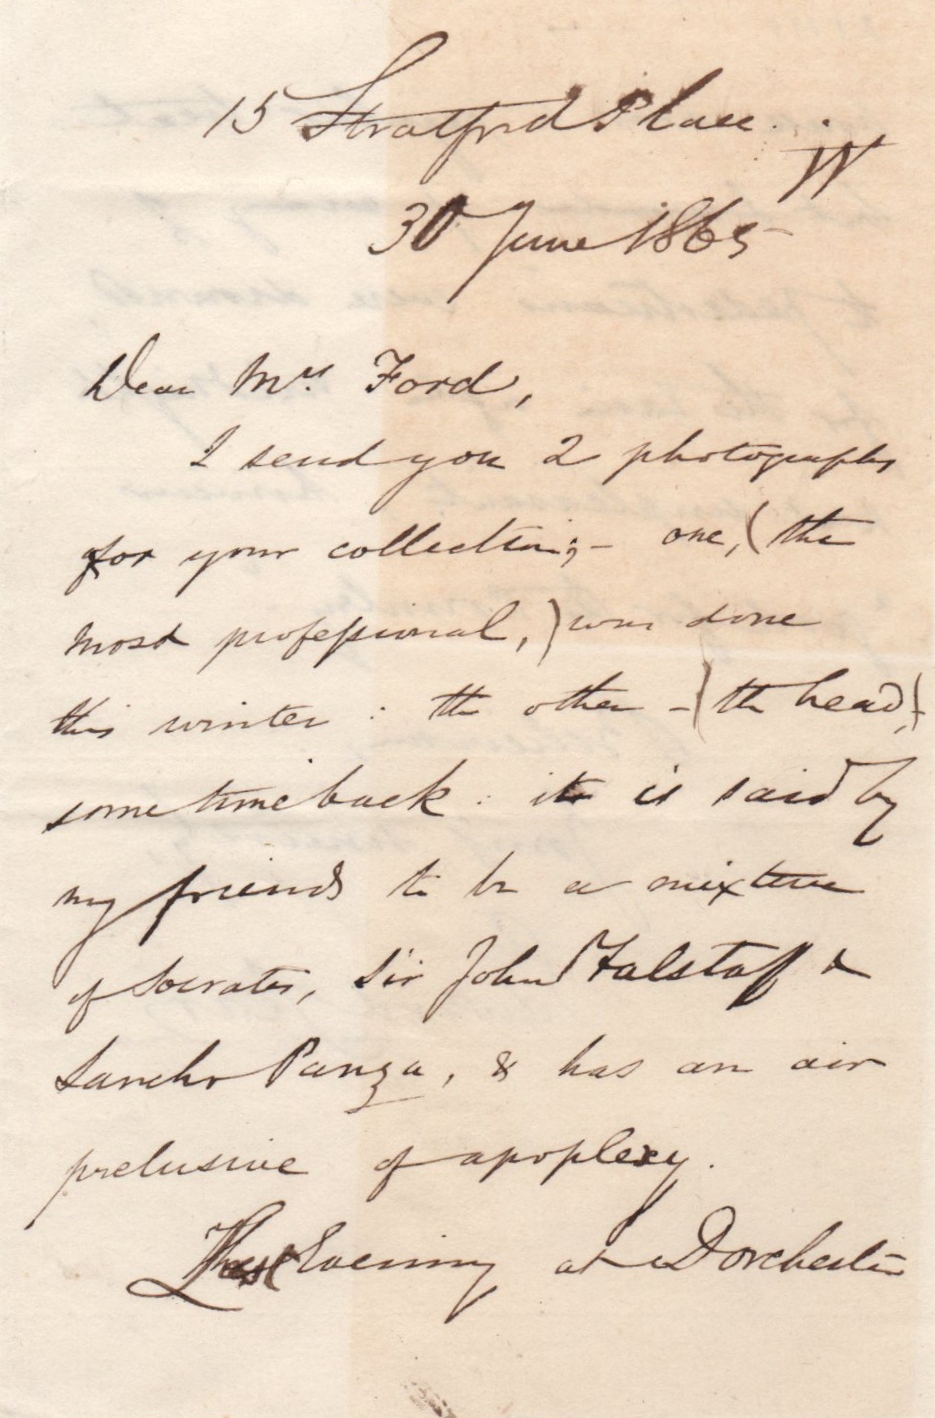 15 Stratford Place. W
30 June 1865
Dear Mrs Ford,
I send you 2 photographs
for your collection;- one, (the
most professional,) was done
this winter: the other - (the head,)-
sometime back: it is said by
my friends to be a mixture
of Socrates, Sir John Falstaff &
Sancho Panza, & has an air
prelusive of apoplexy.
Evening at Dorchester